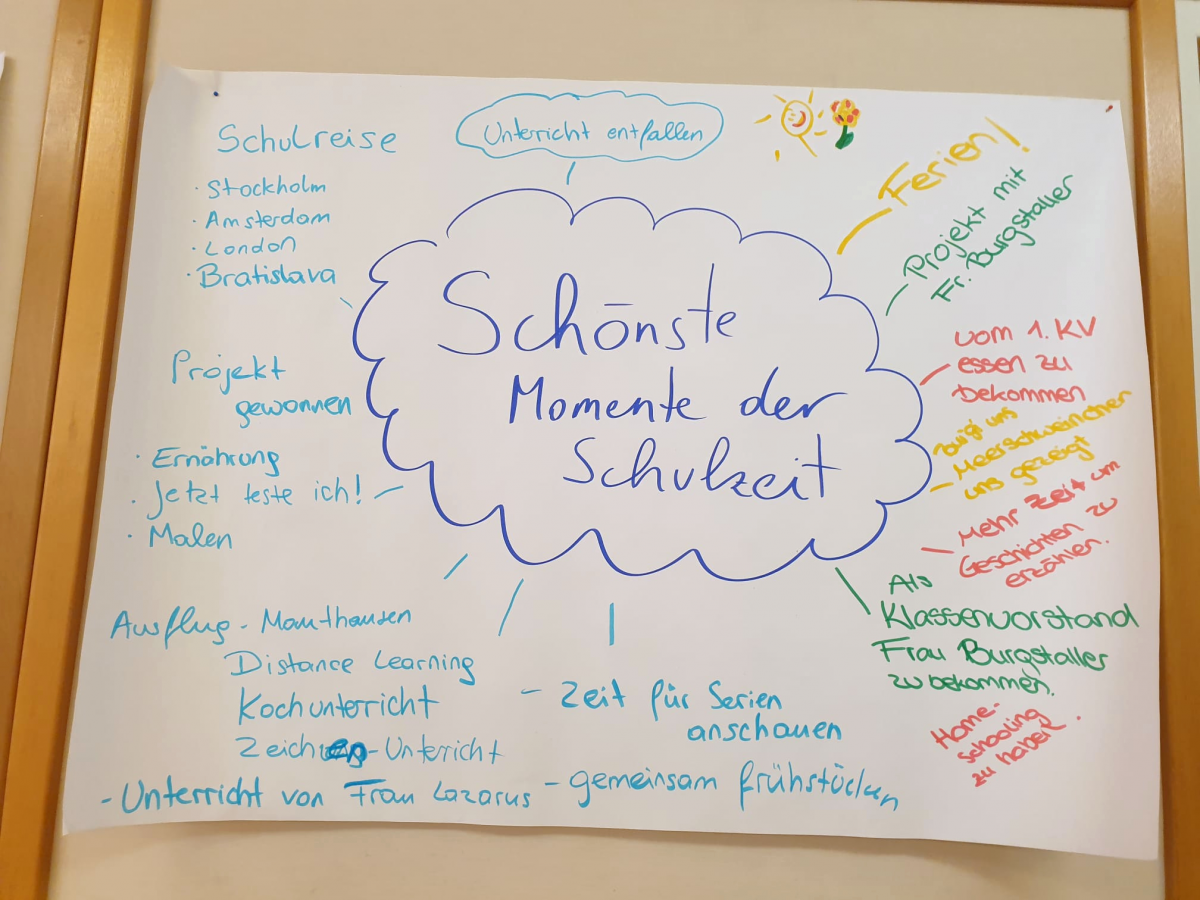 Schulreise
· Stockholm
· Amsterdam
· London
· Bratislava
Unterricht entfallen
Schönste
Momente der
Schulzeit
Projekt
gewonnen
· Ernährung
· Jetzt teste ich!
· Malen
Ausflug - Mauthausen
Distance Learning
Kochunterricht
Zeichnen-Unterricht
- Unterricht von Frau Lazarus
- Zeit für Serien
anschauen
- gemeinsam frühstücken
Ferien!
Projekt mit
Fr. Burgstaller
vom 1. KV
essen zu
bekommen
uns
Meerschweinchen
uns gezeigt
Mehr Zeit um
Geschichten zu
erzählen.
Als
Klassenvorstand
Frau Burgstaller
zu bekommen.
Home-
schooling
zu haben.